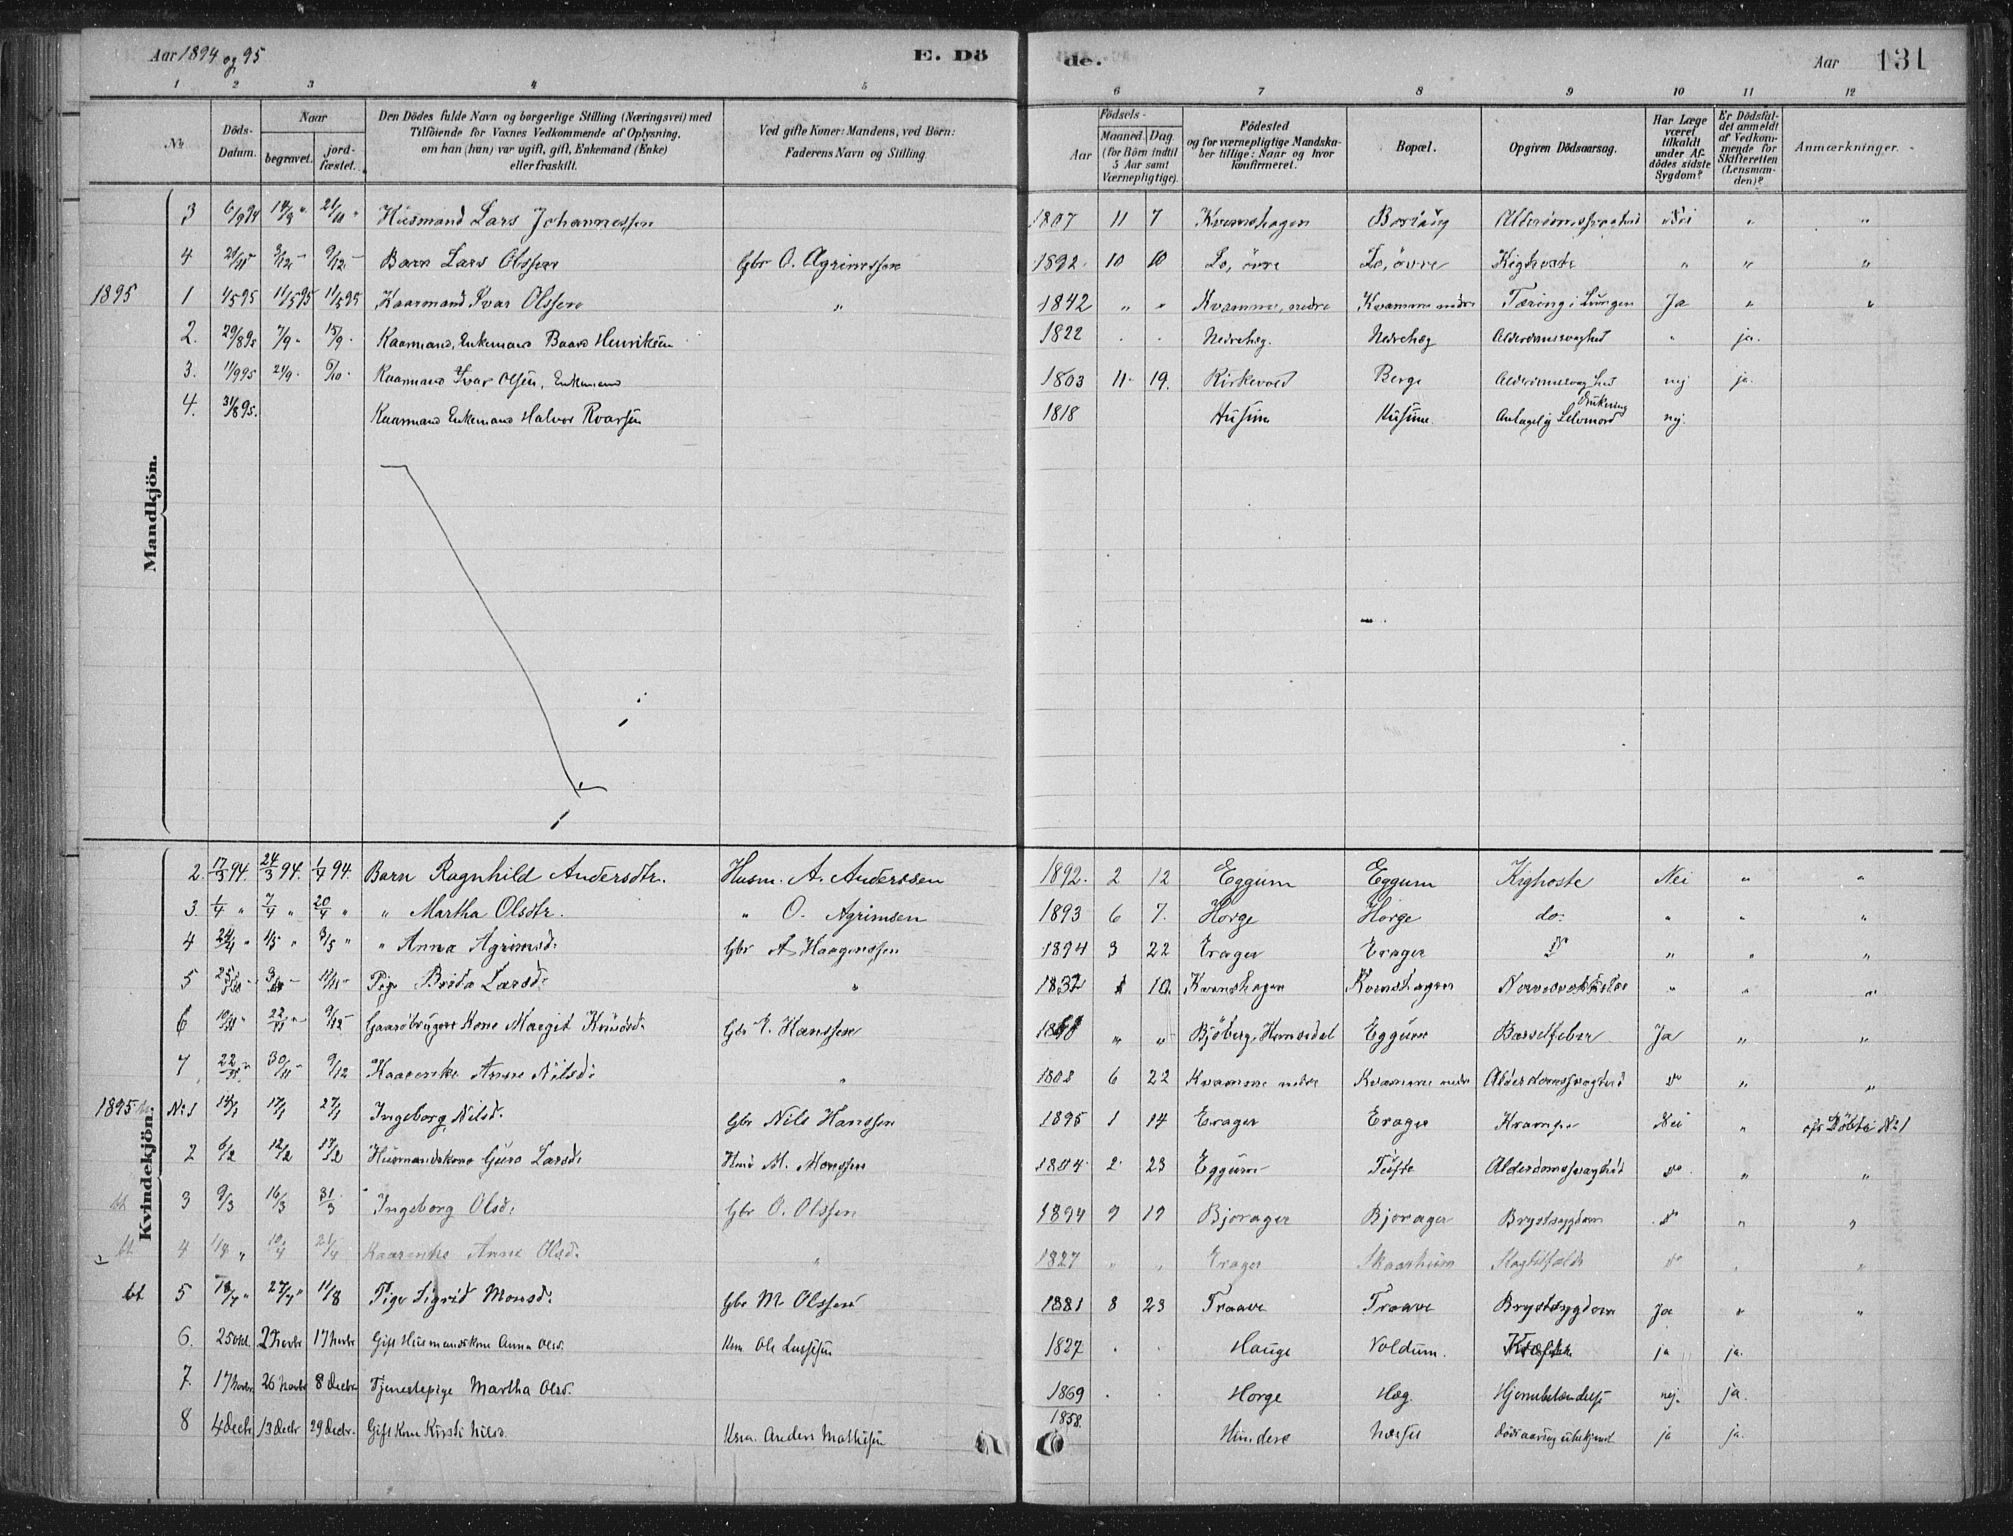 Aar 1894 og 95 E. Dö de. Aar 131
1 2 3 4 5 6 7 8 9 10 11 12
No. Döds-Datum. Naar begravet. jord-fæstet. Den Dödes fulde Navn og borgerlige Stilling (Næringsvei) med Tilföiende for Voxnes Vedkommende af Oplysning, om han (hun) var ugift, gift, Enkemand (Enke) eller fraskilt. Ved gifte Koner: Mandens, ved Börn: Faderens Navn og Stilling Födsels- Aar Maaned. Dag (for Börn indtil 5 Aar samt Værnepligtige). Födested og for værnepligtige Mandskaber tillige: Naar og hvor konfirmeret. Bopæl. Opgiven Dödsaarsag. Har Læge været tilkaldt under Afdödes sidste Sygdom? Er Dödsfaldet anmeldt af Vedkommende for Skifteretten (Lensmanden)? Anmærkninger.
Mandkjön.
3 6/9 94 14/9 " 21/11 " Husmand Lars Johannessen 1807 11 7 Kvamshagen Alderdomssvaghed Nei " "
4 21/11 3/12 9/12 Barn Lars Olssen Gbr O. Agrimssen 1892 10 10 Lo, övre Lo, övre Kighoste " " "
1895 1 4/5 95 11/5 95 11/5 95 Kaarmand Ivar Olssen " 1842 " " Kvamme, nedre Kvamme nedre Tæring i Lungen Ja " "
2. 29/8 95 7/9 15/9 Kaarmand, Enkemand Baard Henriksen 1822 . . Nedrehæg. Nedrehæg Alderdomssvaghed " ja.
3. 11/9 95 21/9 6/10 Kaarmand Ivar Olsen, Enkemand 1803 11 19. Kirkevold Berge Alderdomssvaghed nej ja.
4. 31/8 95. Kaarmand Enkemand Halvor Roarsen 1818 Husum Husum Antagelig Selvmord Drukning nej.
Kvindekjön.
2. 17/3 94. 24/3 94. 1/4 94. Barn Ragnhild Andersdtr. Husm. A. Anderssen 1892. 2 12 Eggum Eggum Kighoste Nei " "
3. 1/4 " 7/4 " 20/4 " " Martha Olsdtr. " O. Agrimsen 1893 6 7. Horge Horge do: " " "
4 24/4 " 1/5 " 3/5 " " Anna Agrimsd: Gbr A. Haagenssen 1894 3 22 Erager Erager " " "
5 3/11 11/11 Pige Brita Larsd: " 1832 10. Kvamshagen Kvamshagen " " "
6 10/11 22/11 9/12 Gaardbrugers Kone Margit Knudsd: Gbr E. Hanssen " " Bjöberg, Hemsedal Eggum Barselfeber Ja " "
7 22/11 30/11 9/12 Kaarenke Anne Nilsd: " 1808 6 22 Kvamme nedre Kvamme nedre Alderdomssvaghed do " "
1895 No 1 14/1 17/1 27/1 Ingeborg Nilsd. Gbr Nils Hanssen 1895 1 14 Erager Erager Krampe Nei " cfr Döbte No 1
2 6/2 12/2 17/2 Husmandskone Guro Larsd: Hmd M. Monssen 2 23 Eggum Töfte Alderdomssvaghed do " "
bt 3 9/3 16/3 31/3 Ingeborg Olsd: Gbr O. Olssen 1894 9 19 Bjorager Bjorager Brystsygdom do " "
bt 4 1/4 " 10/4 21/4 Kaarenke Anne Olsd. " 1827 " " Erager Skaarheim Slagtilfælde do " "
bt 5 27/7 " 11/8 Pige Sigrid Monsd: Gbr M. Olssen 1881 8 23 Traave Traave Brystsygdom Ja " "
6. 25 okt. 2 novbr 17 novbr Gift Husmandskone Anna Olsd. Hm Ole Larssen 1827 . . Hauge Voldum. Kræft ja ja.
7. 17 novbr 26 novbr 8 decbr Tjenestepige Martha Olsd. 1869 . . Horge Hæg. Hjernebetændelse nej. ja.
8 4 decbr 13 decbr 29 decbr. Gift Kone Kirsti Nilsd. Hm. Anders Mathisen 1858. Hundere Næsse dödsaarsag ubekjendt ja ja.